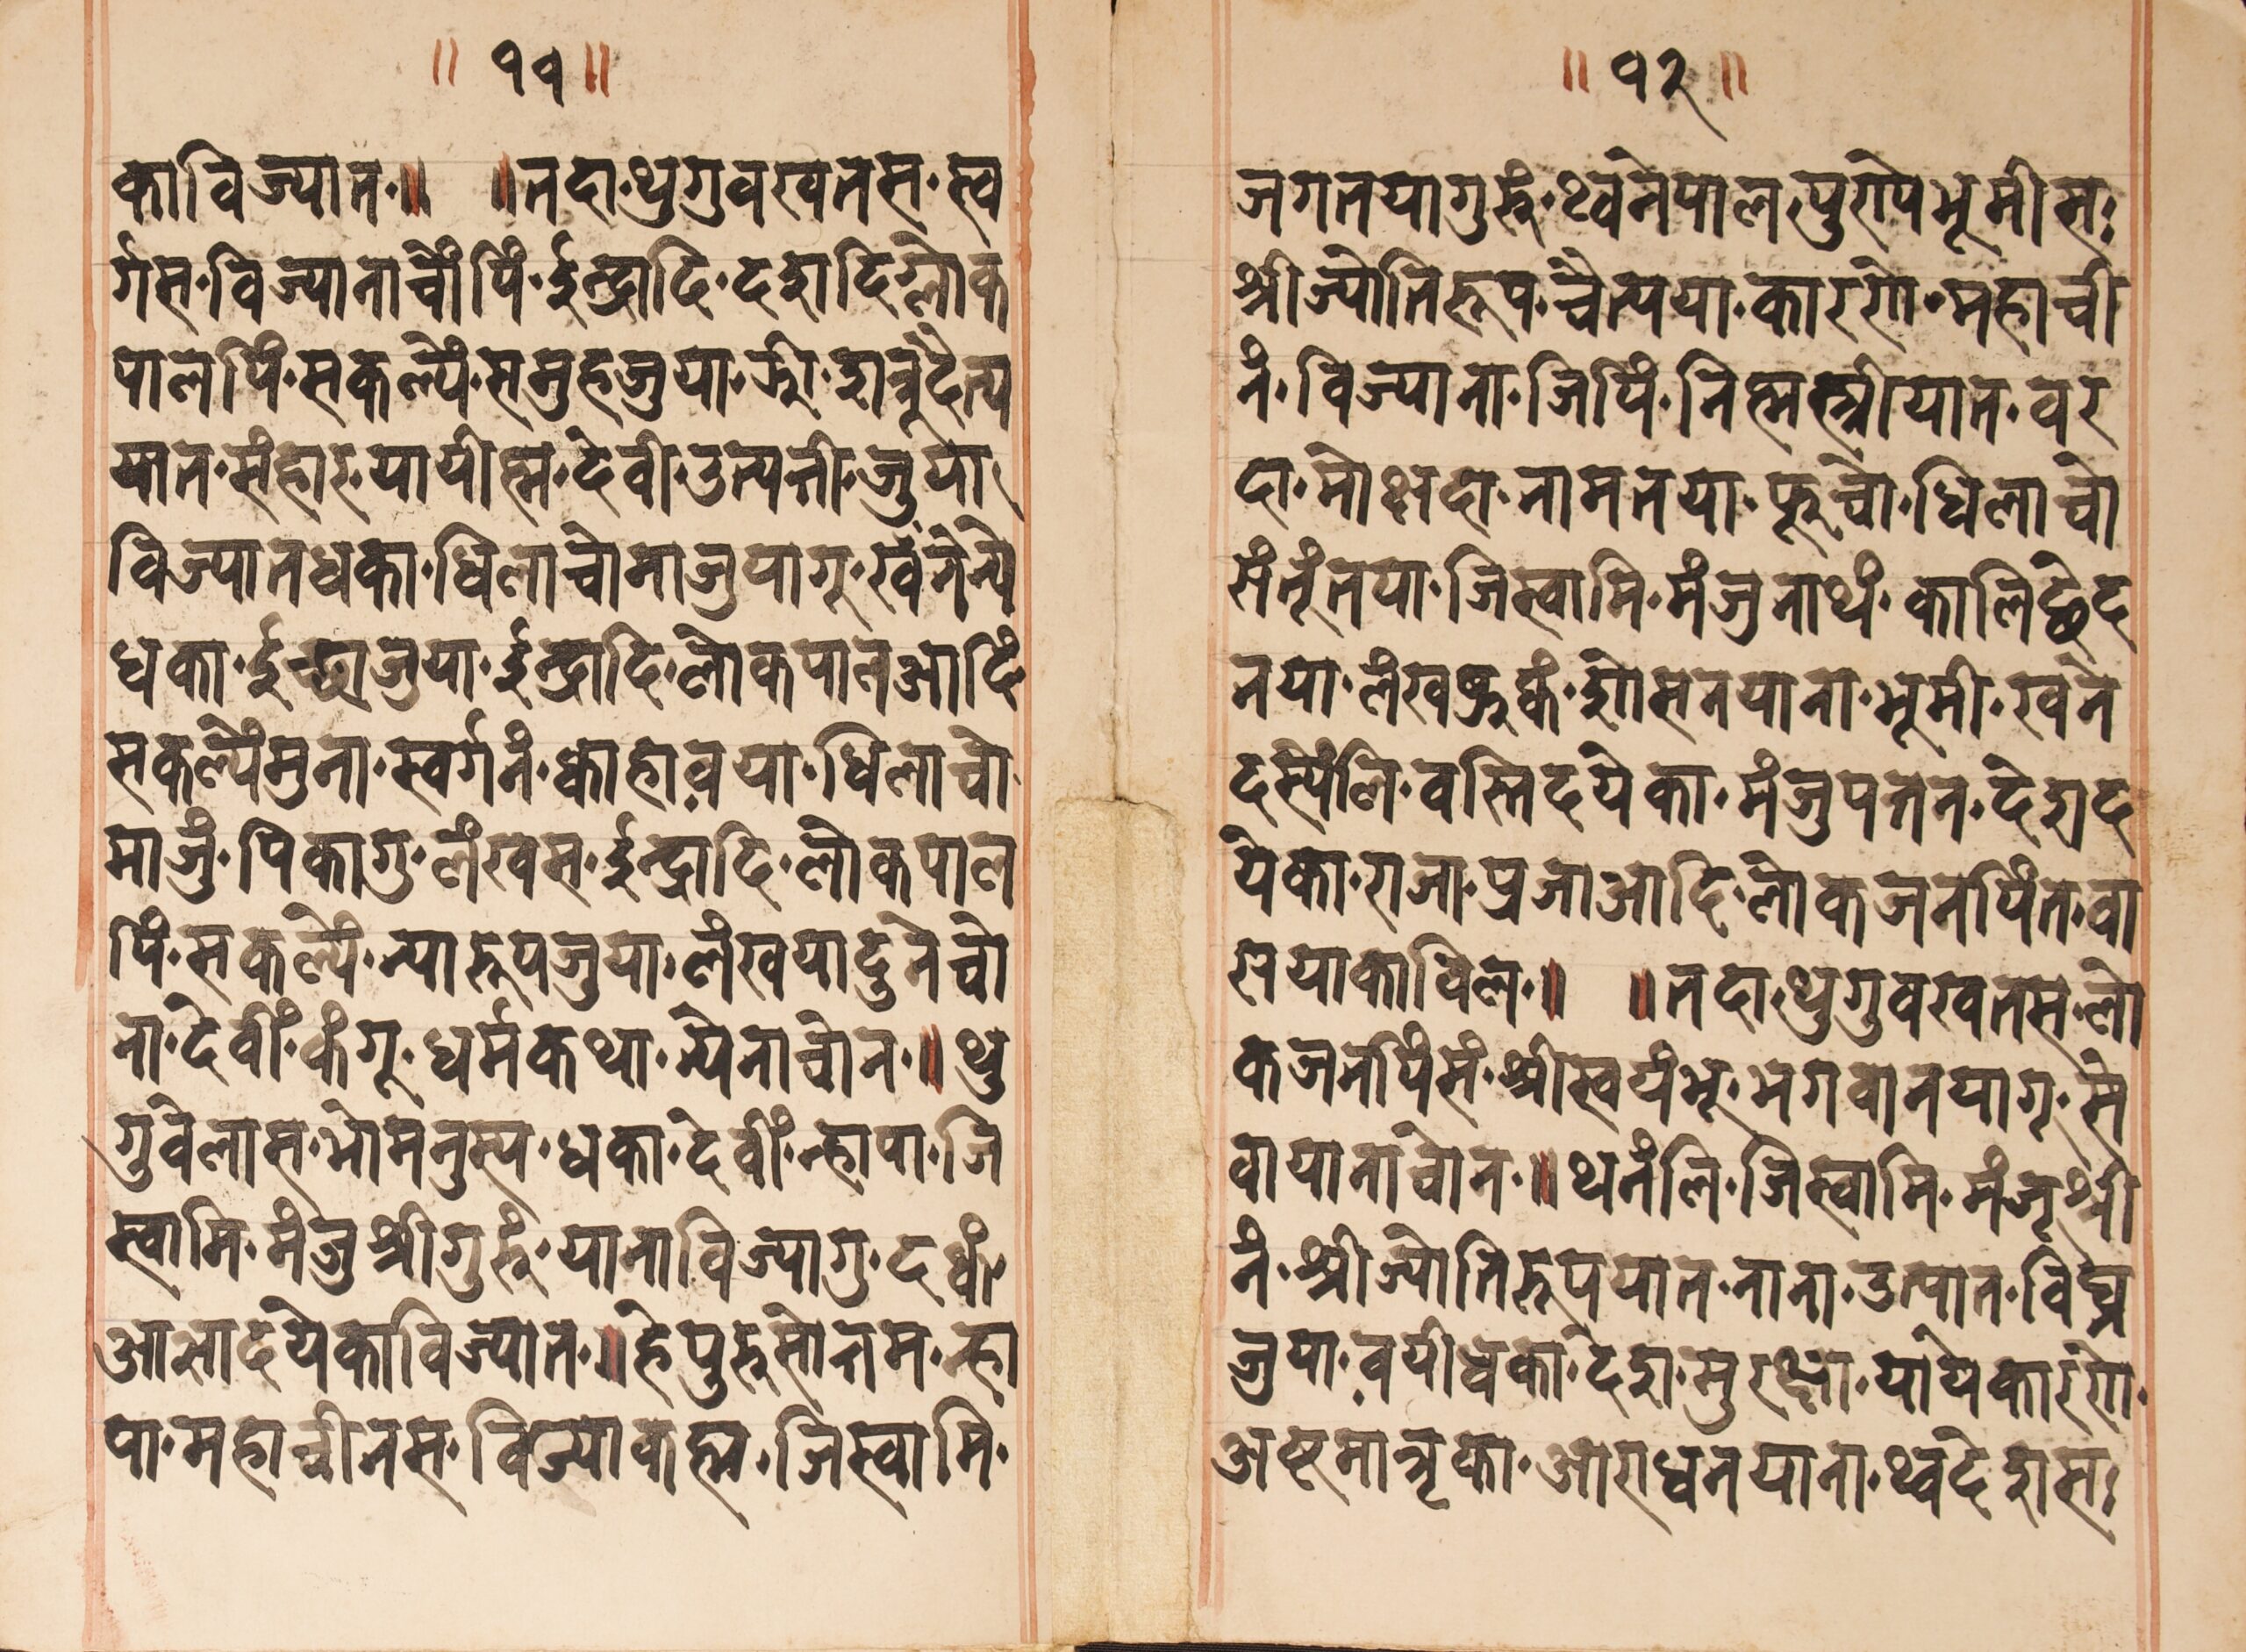 ॥ ११ ॥
काविज्यात·॥ ॥तदा·थुगुवखतस·स्व
र्गस·विज्यानाचोंपिं·ईन्द्रादि·दशदिग्लोक
पालपिं·सकल्यें·समुहजुया·
यात·संहार·यायीह्म·देवी·उत्पत्ती·जुया
विज्यातधका·धिलाचोमाजुपागू·खँनेन्ये
धका·ईच्छाजुया·ईन्द्रादि·लोकपालआदिं
सकल्येंमुना·स्वर्गनं·क्वाहावया·धिलाचो
माजुं·पिकागु·लंखस·ईन्द्रादि·लोकपाल
पिं·सकल्यें·न्यारूपजुया·लंखयादुनेचो
ना·देवीं·कंगू·धर्मकथा·न्येनाचोन·॥थु
गुवेलास·भोमनुस्य·धका·देवीं·न्हापा·जि
स्वामि·मंजुश्रीगुरुं·यानाविज्यागु·दक्वं
आज्ञादयेकाविज्यात·॥हेपुरुसोत्तम·न्हा
पा·महाचीनस·विज्याकह्म·जिस्वामि·
॥ १२ ॥
जगतयागुरुं·थ्वनेपाल
श्रीज्योतिरूप·चैत्यया·कारणे·महाची
नं·विज्याना·जिपिं·निह्मस्त्रीयात·वर
दा·मोक्षदा·नामतया·फूचो·धिलाचो
तया·जिस्वामि·मंजुनाथं·कालिछेद
नया·लंखफुक्कं·शोसनयाना·भूमी·खने
दस्येंलि·वस्तिदयेका·मंजुपत्तन·देशद
येका·राजा·प्रजाआदि·लोकजनपिंत·वा
सयाकाविल·॥ ॥तदा·थुगुवखतस·लो
कजनपिंसं·श्रीस्वयंभू·भगवानयागू·से
वायानाचोन·॥थनंलि·जिस्वामि·मंजूश्री
नं·श्रीज्योतिरूपयात·नाना·उत्पात·विघ्न
जुया·वयीधका·देश·सुरक्षा·यायेकारणे·
अष्टमातृका·आराधनयाना·थ्वदेशस